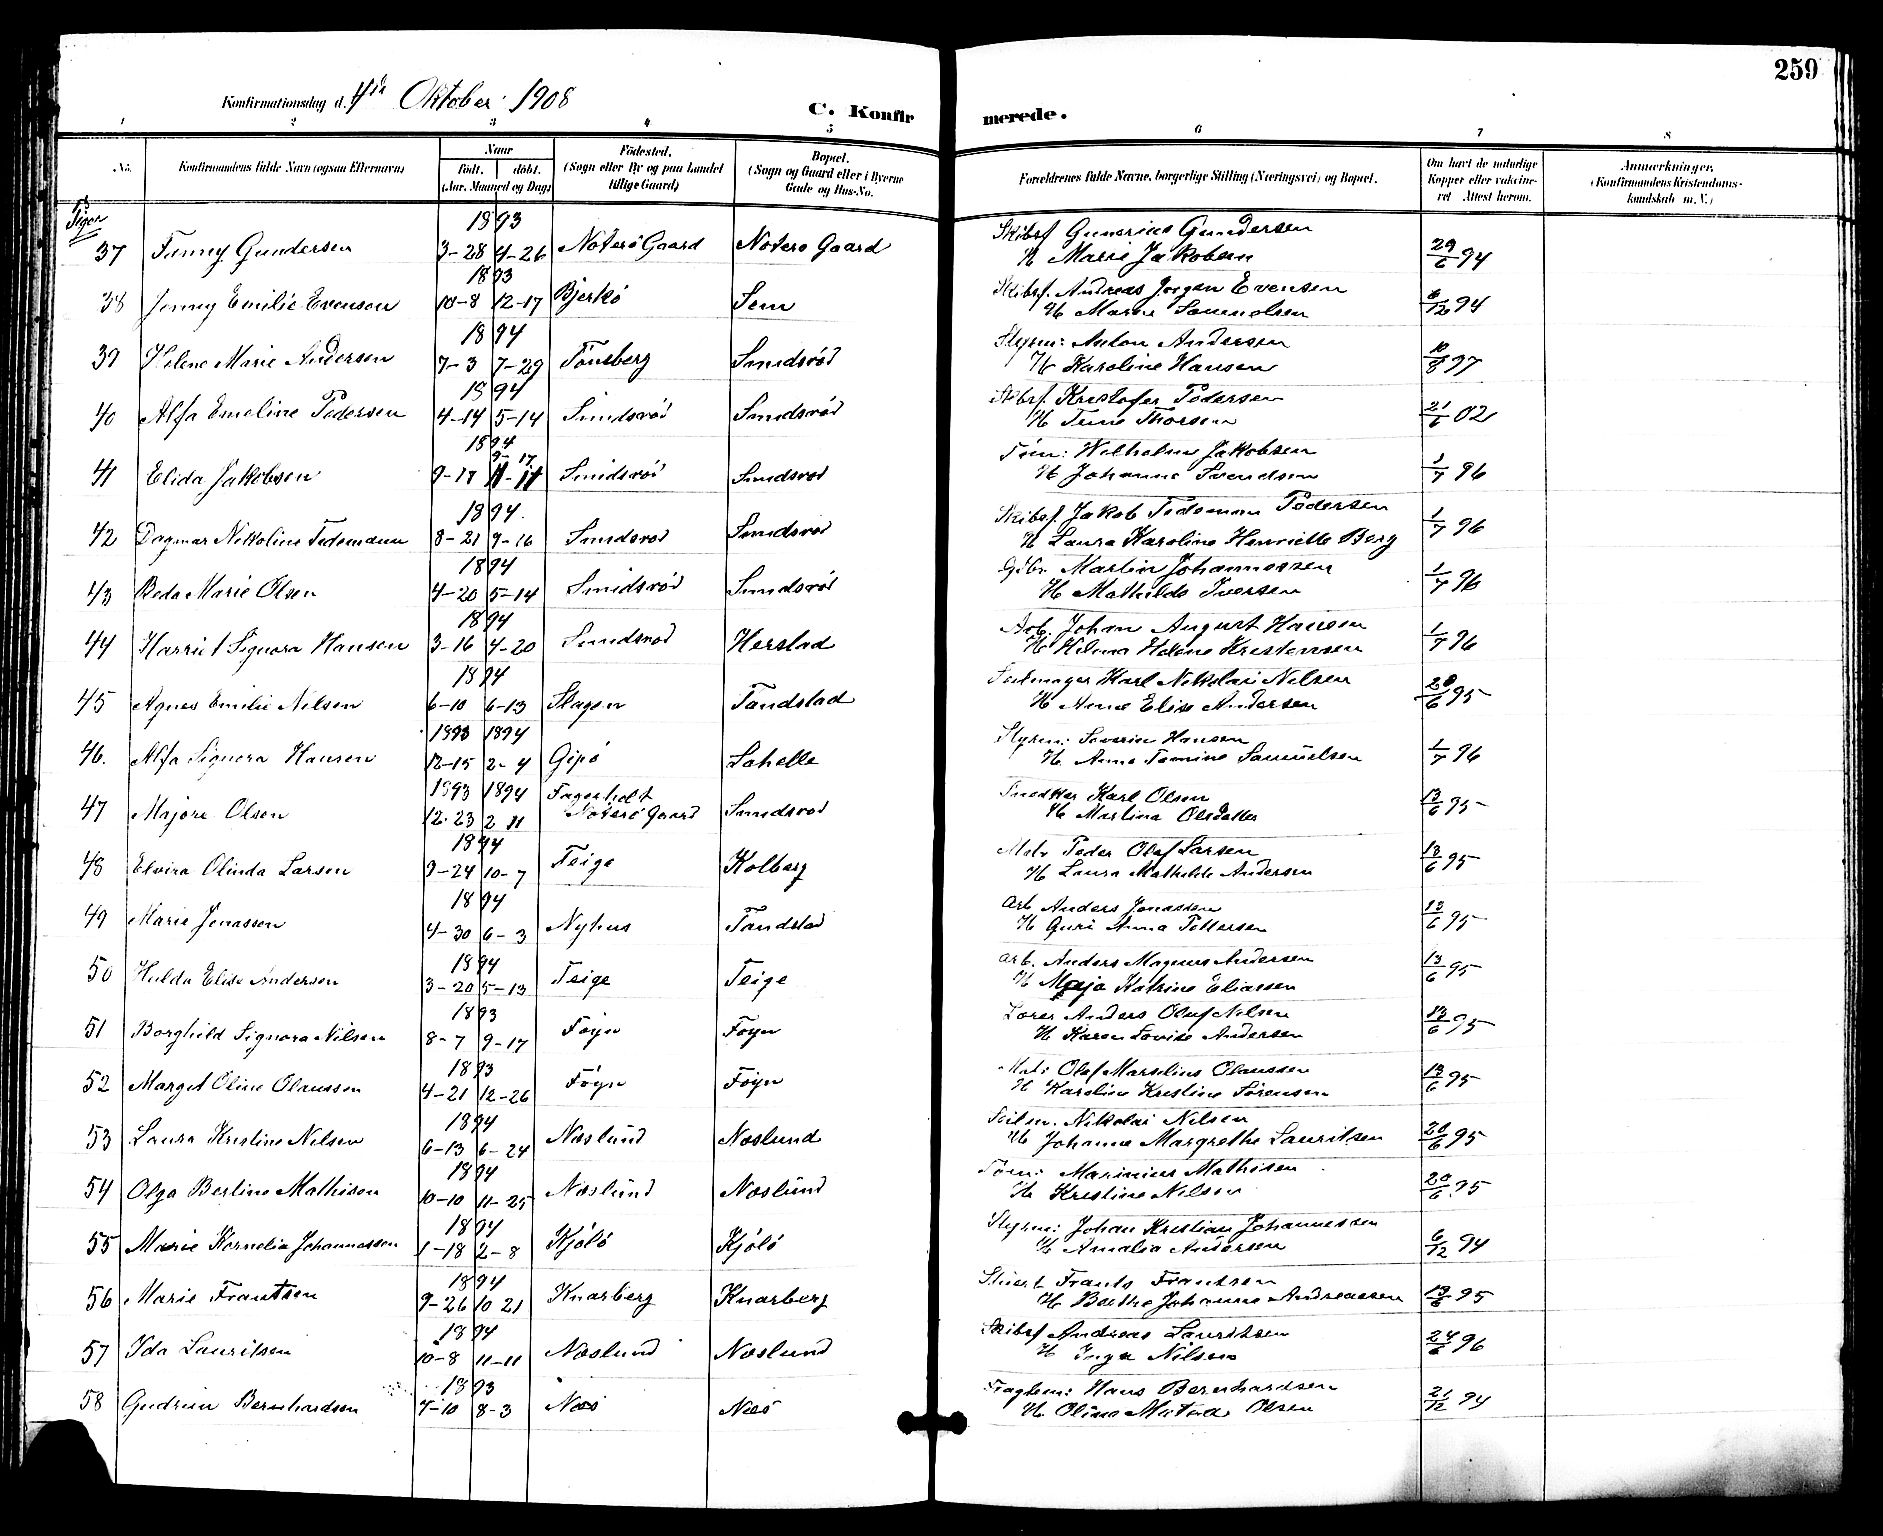 259
Konfirmationsdag d. 4de Oktober 1908
C. Konfirmerede.
1 2 3 4 5 6 7 8
No. Konfirmandens fulde Navn (ogsaa Efternavn) Naar Født. døbt. (Aar, Maaned og Dag) Fødested. (Sogn eller By og paa Landet tillige Gaard) Bopæl. (Sogn og Gaard eller i Byerne Gade og Hus-No. Forældrenes fulde Navne, borgerlige Stilling (Næringsvei) og Bopæl. Om havt de naturlige Kopper eller vaccineret Attest herom. Anmærkninger, (Konfirmandens Kristendomskundskab m. V.)
Piger
37 Fanny Gundersen 1893 3-28 4-26 Nøterø Gaard Nøtero Gaard Skibsf Gunerius Gundersen H Marie Jakobsen 29/6 94
38 Jenny Emilie Evensen 1893 10-8 12-17 Bjerkø Sem Skibsf. Andreas Jørgen Evensen H Marie Samuelsen 6/12 94
39 Helene Marie Andersen 1894 7-3 7-29 Tønsberg Smidsrød Styrm: Anton Andersen H Karoline Hansen 10/8 97
40 Alfa Emeline Pedersen 1894 4-14 5-14 Smidsrød Smidsrød Skibsf. Kristofer Pedersen H Tene Thorsen 21/6 02
41 Elida Jakobsen 1894 9-17 9-17 11-11 Smidsrød Smidsrød Tøm: Wilhelm Jakobsen H Johanne Svendsen 1/7 96
42 Dagmar Nikoline Tidemann 1894. 8-21 9-16 Smidsrod Smidsrod Skibsf. Jakob Tidemann Pedersen H Laura Karoline Henriette Berg 1/7 96
43 Beda Marie Olsen 1894 4-20 5-14 Smidsrød Smidsrød Gdbr. Martin Johannessen H Mathilde Iversen 1/7 96
44 Harriet Signora Hansen 1894 3-16 4-20 Smidsrod Herstad Arb. Johan August Hansen H Helma Helene Kristensen 1/7 96
45 Agnes Emilie Nilsen 1894 6-10 6-13 Slagen Tandstad Seilmager Karl Nikolai Nilsen H Anne Elise Andersen 20/6 95
46. Alfa Signora Hansen 1893 1894 12-15 2-4 Gipø Lahelle Styrm: Severin Hansen H Anne Tomine Samuelsen 1/7 96
47 Majore Olsen 1893 1894 12-23 2 11 Fagerholt Nøterø Gaard Smidsrod Snedker Karl Olsen H Martina Olsdatter 13/6 95
48 Elvira Olinda Larsen 1894 9-24 10-7 Teige Kolberg Matr Peder Olaf Larsen H Laura Mathilde Andersen 13/6 95
49 Marie Jonassen 1894 4-30 6-3 Nyhus Tandstad Arb Anders Jonassen H Guri Anna Pettersen 13/6 95
50 Hulda Elise Andersen 1894 3-20 5-13 Teige Teige Arb. Anders Magnus Andersen H Maja Katrine Eliassen 13/6 95
51 Borghild Signora Nilsen 1893 8-7 9-17 Føyn Føyn Lorer Anders Oluf Nilsen H Karen Lovise Andersen 13/6 95
52 Margit Oline Olaussen 1893 4-21 12-26 Føyn Føyn Mat: Olaf Marselius Olaussen H Karoline Kristine Sørensen 13/6 95
53 Laura Kristine Nilsen 1894 6-13 6-24 Næslund Næslund Seilm. Nikolai Nilsen H Johanne Margrethe Lauritsen 20/6 95
54 Olga Bertine Mathisen 1894 10-10 11-25 Næslund Næslund Tøm: Marinius Mathisen H Kristine Nilsen 20/6 95
55 Marie Kornelia Johannessen 1894 1-18 2-8 Kjøle Kjøle Styrm: Johan Kristian Johannessen H Amalia Andersen 6/12 94
56 Marie Frantsen 1894 9-26 10 21 Knarberg Knarberg Stuert Frants Frantsen H Berthe Johanne Andreassen 13/6 95
57 Ida Lauritsen 1894 10-8 11-11 Næslund Næslund Skibsf Andreas Lauritsen H Inga Nilsen 24/6 96
58 Gudrun Bernhardsen 1893 7-10 8-3 Næs Næs Fragtem: Hans Bernhardsen H Oline Matea Olsen 21/12 94